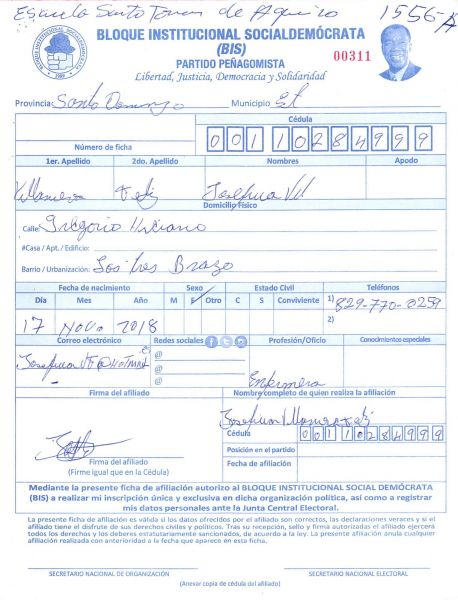 Escuela Santo Tomas de Aquino 1556-A
BLOQUE INSTITUCIONAL SOCIALDEMÓCRATA
(BIS)
PARTIDO PEÑAGOMISTA
00311
Libertad, Justicia, Democracia y Solidaridad
BLOQUE INSTITUCIONAL SOCIALDEMOCRATA
1989
Provincia: Santo Domingo Municipio
Cédula
Número de ficha 00110284999
1er. Apellido 2do. Apellido Nombres Apodo
Villanueva
Domicilio Físico
Calle: Gregorio
#Casa / Apt. / Edificio:
Barrio / Urbanización: Los tres Brazo
Fecha de nacimiento Sexo Estado Civil Teléfonos
Día Mes Año M F Otro C S Conviviente 1) 829-770-0259
2)
17 Nov 2018
Correo electrónico Redes sociales Profesión/Oficio Conocimientos especiales
@
@
@
Enfermera
Firma del afiliado Nombre completo de quien realiza la afiliación
Cédula 00110284999
Posición en el partido
Firma del afiliado
(Firme igual que en la Cédula)
Fecha de afiliación
Mediante la presente ficha de afiliación autorizo al BLOQUE INSTITUCIONAL SOCIAL DEMÓCRATA
(BIS) a realizar mi inscripción única y exclusiva en dicha organización política, así como a registrar
mis datos personales ante la Junta Central Electoral.
La presente ficha de afiliación es válida si los datos ofrecidos por el afiliado son correctos, las declaraciones veraces y si el
afiliado tiene el disfrute de sus derechos civiles y políticos. Tras su recepción, sello y firma autorizadas el afiliado ejercerá
todos los derechos y los deberes estatutariamente sancionados, de acuerdo a la ley. La presente afiliación anula cualquier
afiliación realizada con anterioridad a la fecha que aparece en esta ficha.
SECRETARIO NACIONAL DE ORGANIZACIÓN SECRETARIO NACIONAL ELECTORAL
(Anexar copia de cédula del afiliado)